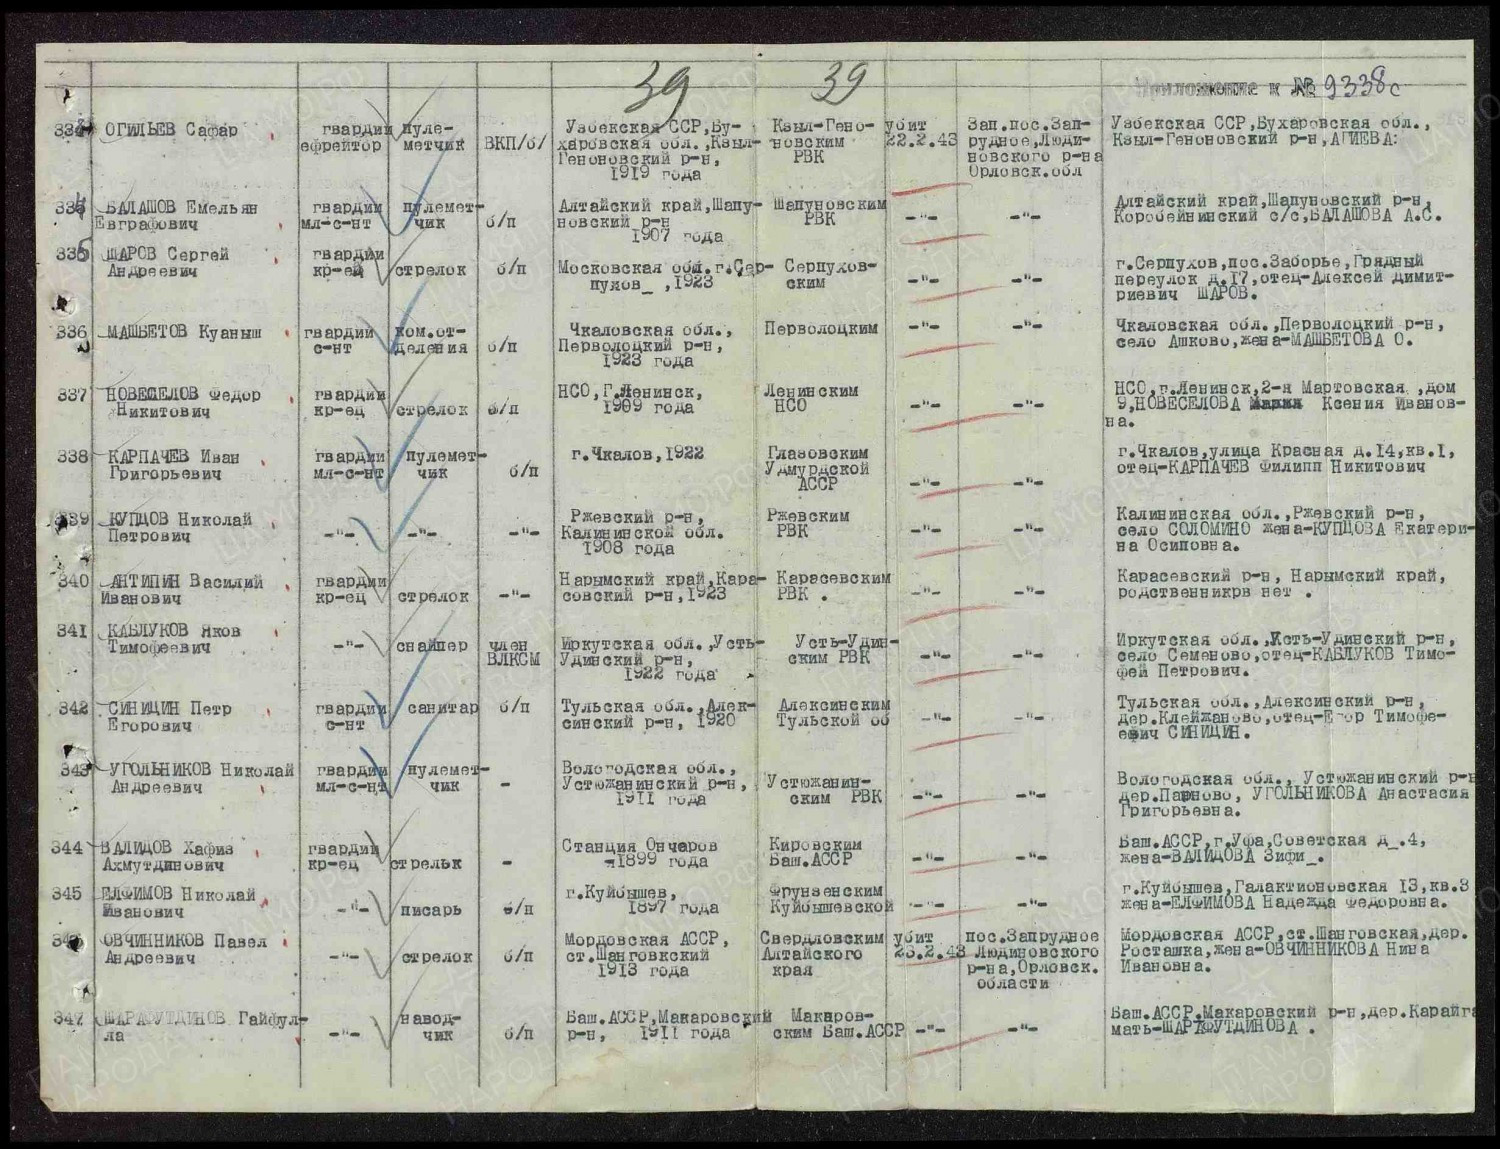 39 39 Приложение к № 9338с
334 ОГИЛЬЕВ Сафар гвардии ефрейтор пуле-метчик ВКП/б/ Узбекская ССР,Бу-харовская обл.,Кзыл-Геноновский р-н, 1919 года Кзыл-Гено-новским РВК убит 22.2.43 Зап.пос.Зап-рудное,Люди-новского р-на Орловск.обл Узбекская ССР,Бухаровская обл., Кзыл-Геноновский р-н,АГИЕВА:
335 БАЛАШОВ Емельян Евграфович гвардии мл-с-нт пулемет-чик б/п Алтайский край,Шапу-новский р-н 1907 года Шапуновским РВК -"- -"- Алтайский край,Шапуновский р-н, Коробейнинский с/с,БАЛАШОВА А.С.
335 ШАРОВ Сергей Андреевич гвардии кр-ец стрелок б/п Московская обл.г.Сер-пухов_ ,1923 Серпухов-ским -"- -"- г.Серпухов,пос.Заборье,Грядный переулок д.17,отец-Алексей Димит-риевич ШАРОВ.
336 МАШБЕТОВ Куаныш гвардии с-нт ком.от-деления б/п Чкаловская обл., Перволоцкий р-н, 1923 года Перволоцким -"- -"- Чкаловская обл.,Перволоцкий р-н, село Ашково,жена-МАШБЕТОВА О.
337 НОВЕСЕЛОВ Федор Никитович гвардии кр-ец стрелок б/п НСО,Г.Ленинск, 1909 года Ленинским НСО -"- -"- НСО,г.Ленинск,2-я Мартовская ,дом 9,НОВЕСЕЛОВА Ксения Иванов-на.
338 КАРПАЧЕВ Иван Григорьевич гвардии мл-с-нт пулемет-чик б/п г.Чкалов,1922 Глазовским Удмурдской АССР -"- -"- г.Чкалов,улица Красная д.14,кв.1, отец-КАРПАЧЕВ Филипп Никитович
339 КУПЦОВ Николай Петрович -"- -"- -"- Ржевский р-н, Калининской обл. 1908 года Ржевским РВК -"- -"- Калининская обл.,Ржевский р-н, село СОЛОМИНО жена-КУПЦОВА Екатери-на Осиповна.
340 АНТИПИН Василий Иванович гвардии кр-ец стрелок -"- Нарымский край,Кара-совский р-н,1923 Карасевским РВК . -"- -"- Карасевский р-н, Нарымский край, родственникрв нет .
341 КАБЛУКОВ Яков Тимофеевич -"- снайпер член ВЛКСМ Иркутская обл.,Усть-Удинский р-н, 1922 года Усть-Удин-ским РВК -"- -"- Иркутская обл.,Усть-Удинский р-н, село Семеново,отец-КАБЛУКОВ Тимо-фей Петрович.
342 СИНИЦИН Петр Егорович гвардии с-нт санитар б/п Тульская обл.,Алек-синский р-н, 1920 Алексинским Тульской об -"- -"- Тульская обл.,Алексинский р-н, дер.Клейжаново,отец-Егор Тимофе-евич СИНИЦИН.
343 УГОЛЬНИКОВ Николай Андреевич гвардии мл-с-нт пулемет-чик - Вологодская обл., Устюжанинский р-н, 1911 года Устюжанин-ским РВК -"- -"- Вологодская обл., Устюжанинский р-н дер.Парново, УГОЛЬНИКОВА Анастасия Григорьевна.
344 ВАЛИДОВ Хафиз Ахмутдинович гвардии кр-ец стрельк - Станция Ончаров 1899 года Кировским Баш.АССР -"- -"- Баш.АССР,г.Уфа,Советская д_.4, жена-ВАЛИДОВА Зифи_.
345 ЕЛФИМОВ Николай Иванович -"- писарь б/п г.Куйбышев, 1897 года Фрунзенским Куйбышевской -"- -"- г.Куйбышев,Галактионовская 13,кв.3 жена-ЕЛФИМОВА Надежда Федоровна.
346 ОВЧИННИКОВ Павел Андреевич -"- стрелок б/п Мордовская АССР, ст.Шанговкский 1913 года Свердловским Алтайского края убит 23.2.43 пос.Запрудное Людиновского р-на,Орловск. области Мордовская АССР,ст.Шанговская,дер. Росташка,жена-ОВЧИННИКОВА Нина Ивановна.
347 ШАРАФУТДИНОВ Гайфул-ла -"- навод-чик б/п Баш.АССР,Макаровский р-н, 1911 года Макаров-ским Баш.АССР -"- -"- Баш.АССР.Макаровский р-н,дер.Карайга мать-ШАРАФУТДИНОВА .